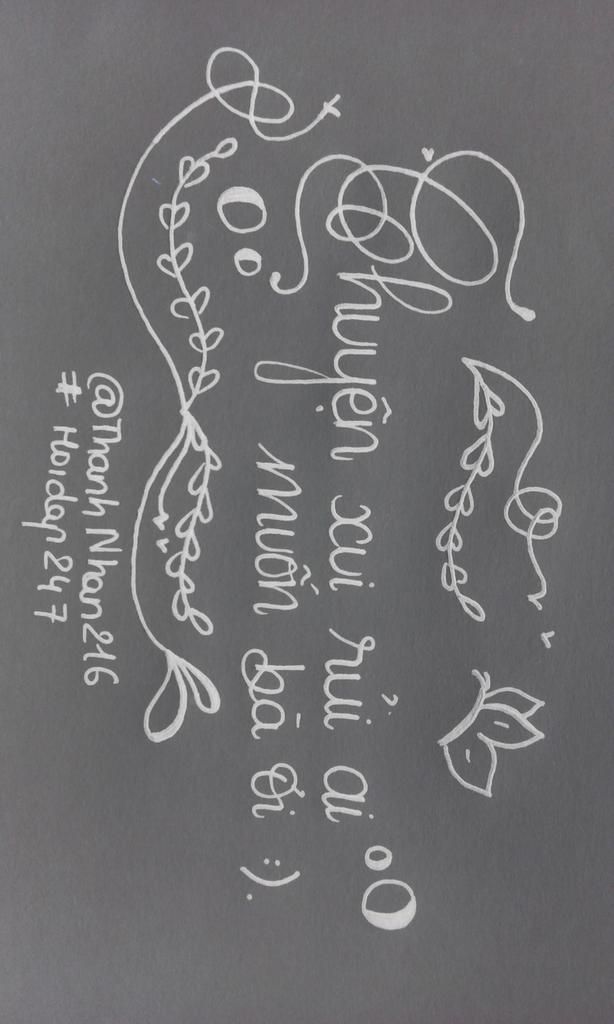 Chuyện xui rủi ai
muốn bà ơi :).
@Thanh Nhan216
# Hoidap 247